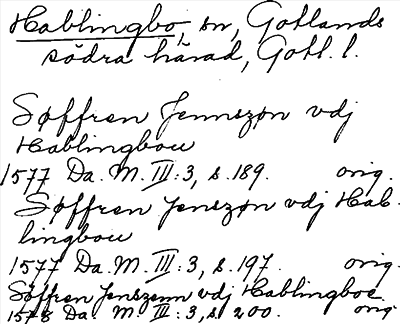 Hablingbo, sn, Gotlands
södra härad, Gotl. l.
Søffren Jennszøn vdj
Hablingbou
1577 Da. M. III: 3, s. 189. orig.
Søffren Jenszøn vdj Hab-
lingbou
1577 Da. M. III: 3, s. 197. orig.
Søffren Jenszenn vdj Hablingboe.
1578 Da M. III: 3, s. 200. orig